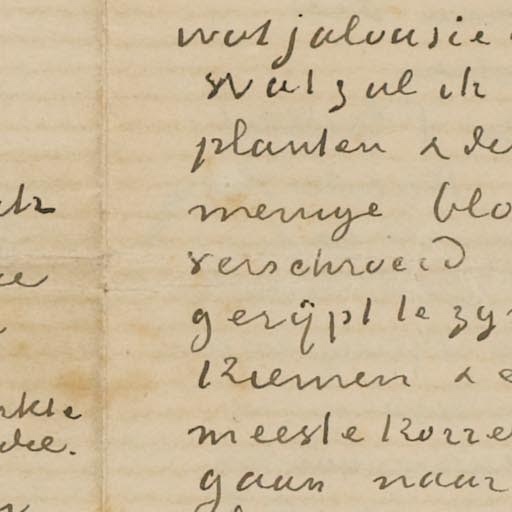 wat jalousie
Wat zal ik
planten & de
menige blo
verschroeid
gerijpt te zijn
Kiemen & e
meeste korre
gaan naar
rkte